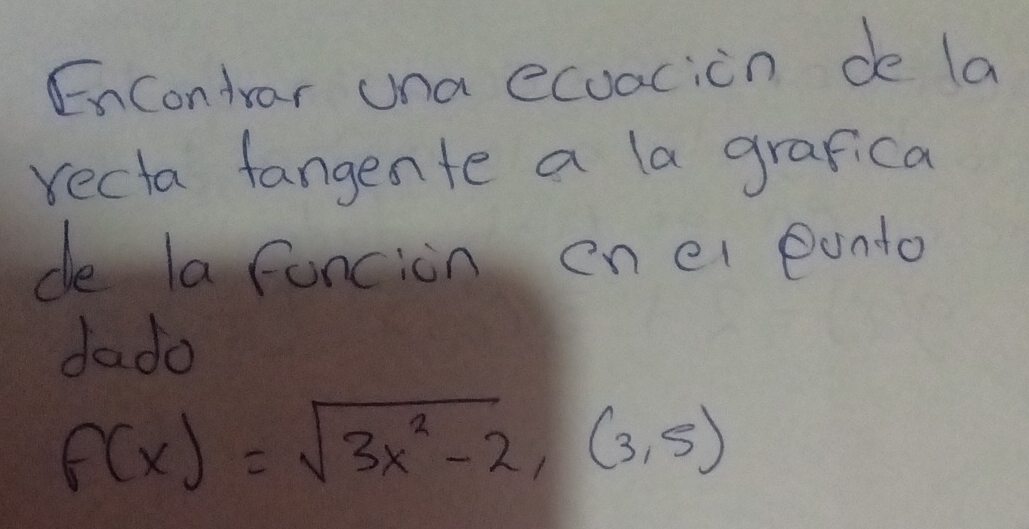 Encontrar una ecuación de la
recta tangente a la grafica
de la función en el punto
dado
f(x) = √3x² - 2, (3,5)